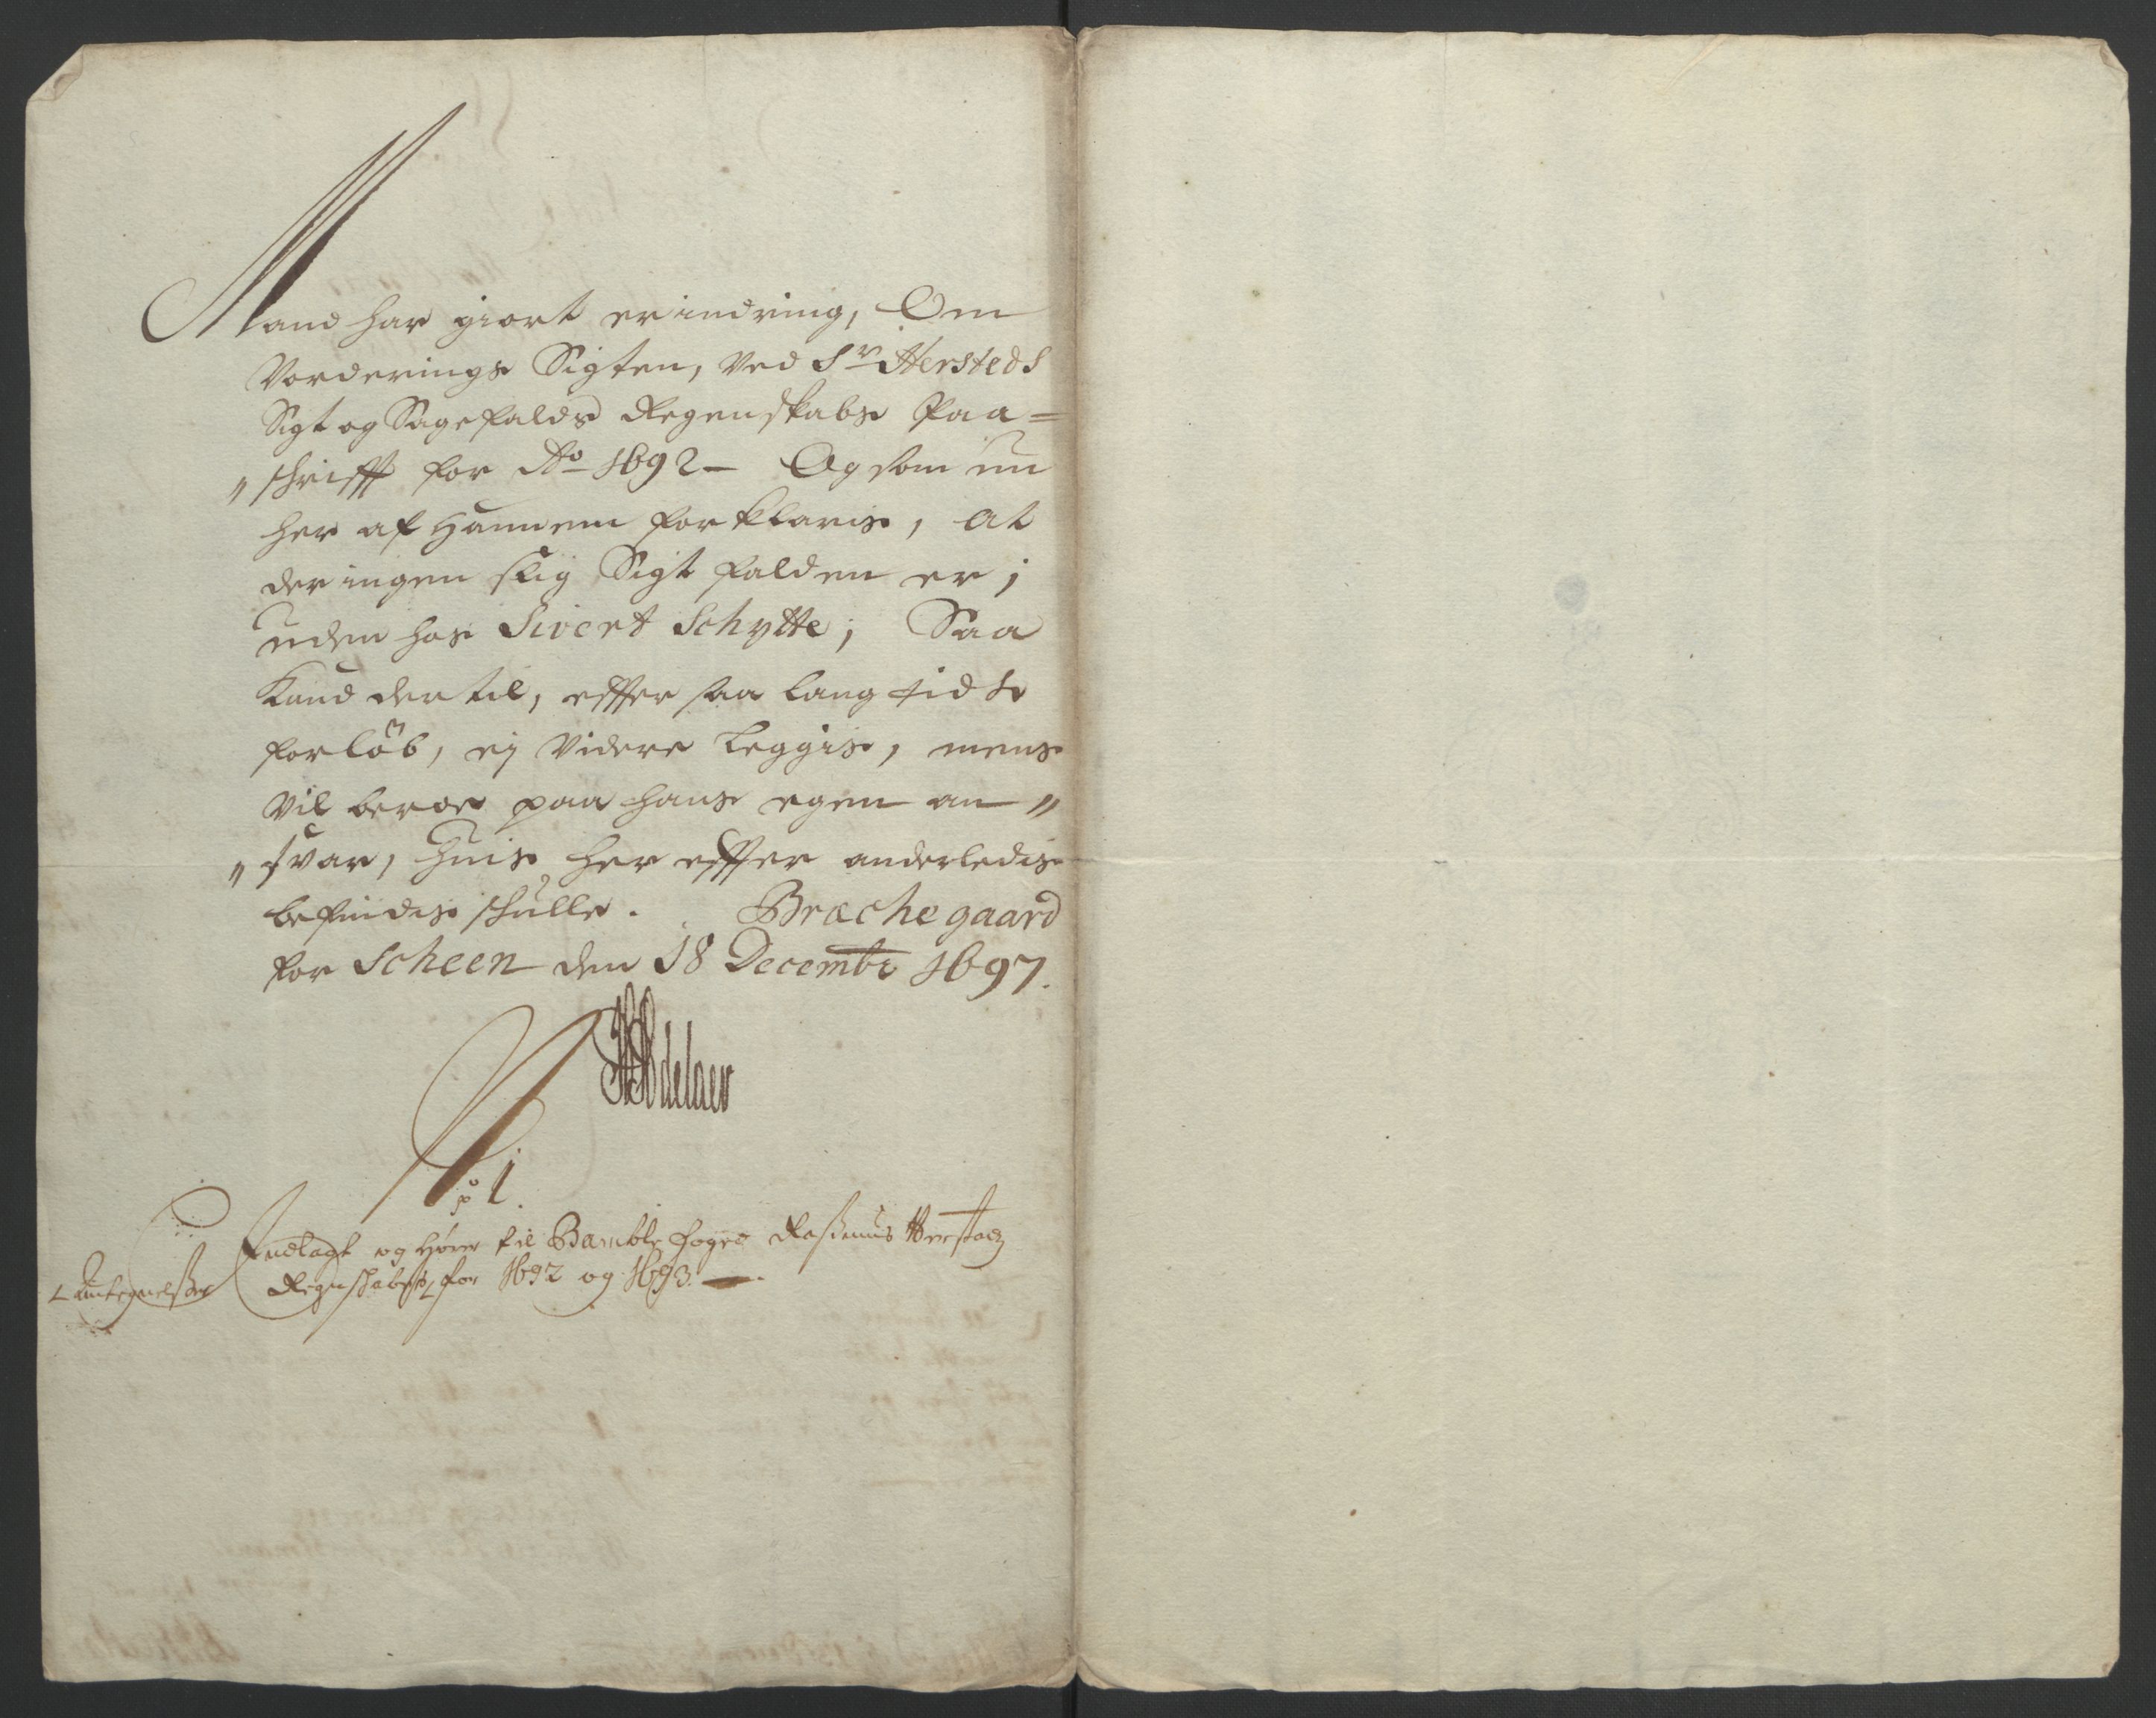 Mand har giort erindring, Om
Vorderings Sigten, Ved Sr Hersteds
Sigt og Sagefalds Regenskabs Paa=
„schrifft for Ao 1692 – Og som nu
her af Hannem forklaris, at
der ingen slig Sigt falden er;
uden hos Sivert Schytte; Saa
Kand der til, effter saa lang tids
forlöb, ej Videre Leggis, mens
Vil beroe paa hans egen an„
„svar, huis her effter anderledis
befindis schulle. Brachegaard
for Scheen den 18 Decembr 1697.
HAdelaer
No 1.
Indlagt og Hører til Bamble foged Rasmus Herstad
Antegnelser Regenskaber for 1692 og 1693.